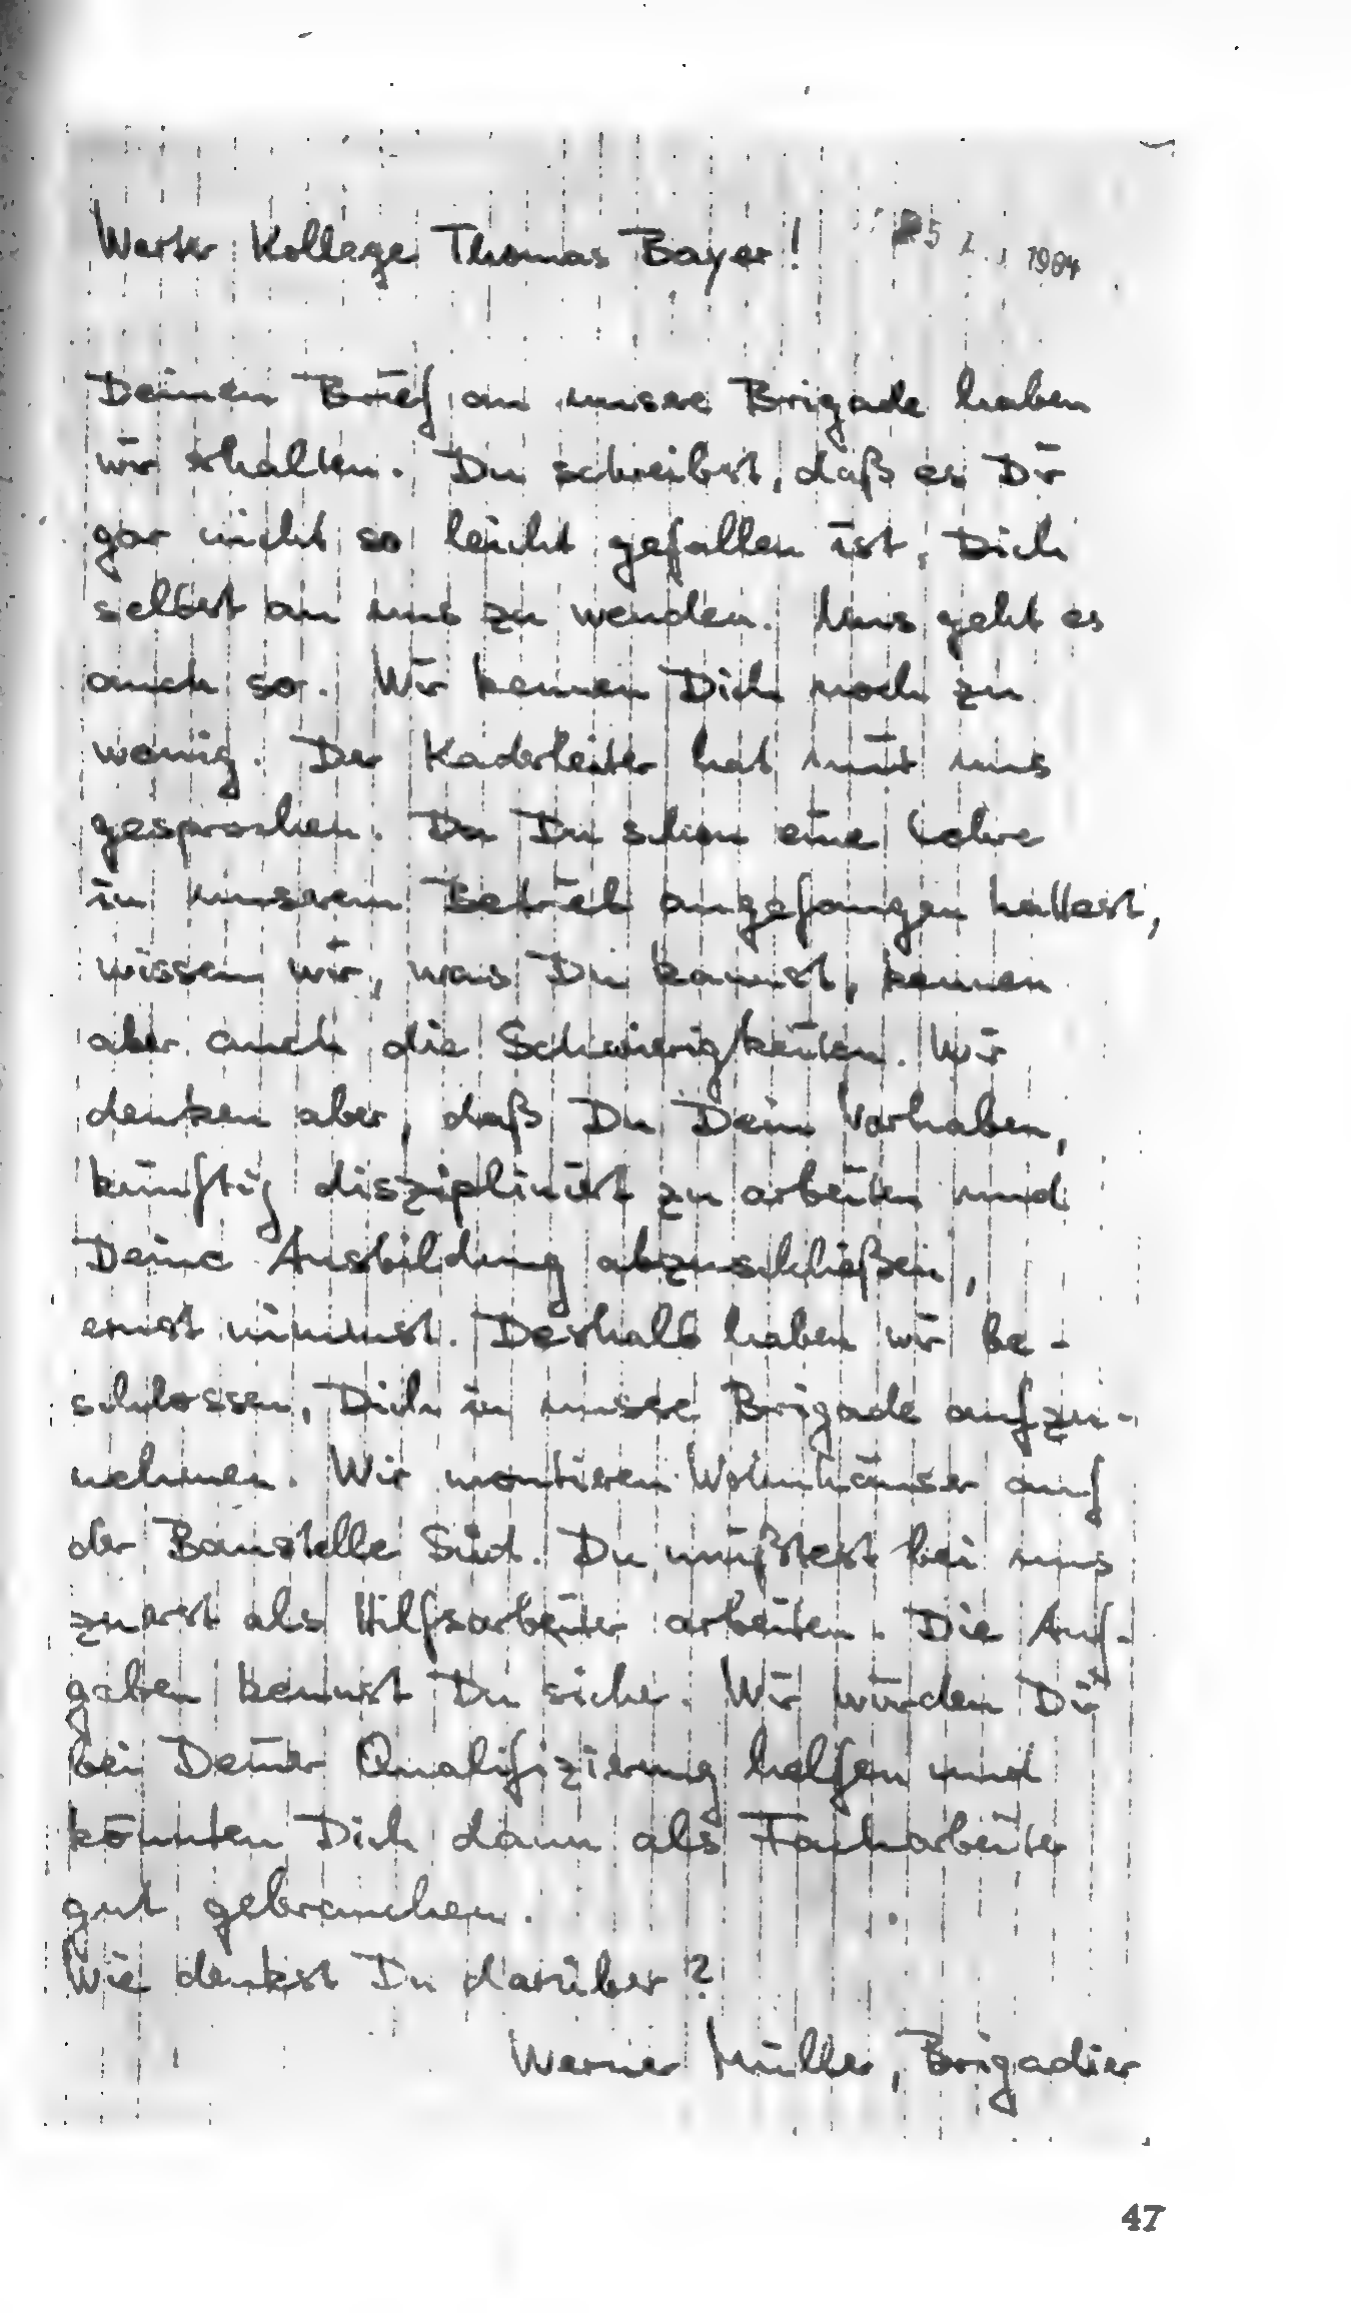 Werter Kollege Thomas Bayer!
Deinen Brief an unsere Brigade haben
wir erhalten. Du schreibst, daß es Dir
gar nicht so leicht gefallen ist, Dich
selbst an uns zu wenden. Uns geht es
auch so. Wir kennen Dich noch zu
wenig. Der Kaderleiter hat mit uns
gesprochen. Da Du schon eine Lehre
in unserem Betrieb angefangen hattest,
wissen wir, was Du kannst, kennen
aber auch die Schwierigkeiten. Wir
denken aber, daß Du Dein Vorhaben,
künftig diszipliniert zu arbeiten und
Deine Ausbildung abzuschließen,
ernst nimmst. Deshalb haben wir be-
schlossen, Dich in unsere Brigade aufzu-
nehmen. Wir montieren Wohnhäuser auf
der Baustelle Süd. Du müßtest bei uns
zuerst als Hilfsarbeiter arbeiten. Die Auf-
gaben kennst Du sicher. Wir würden Dir
bei Deiner Qualifizierung helfen und
könnten Dich dann als Facharbeiter
gut gebrauchen.
Wie denkst Du darüber?
Werner Müller, Brigadier
47